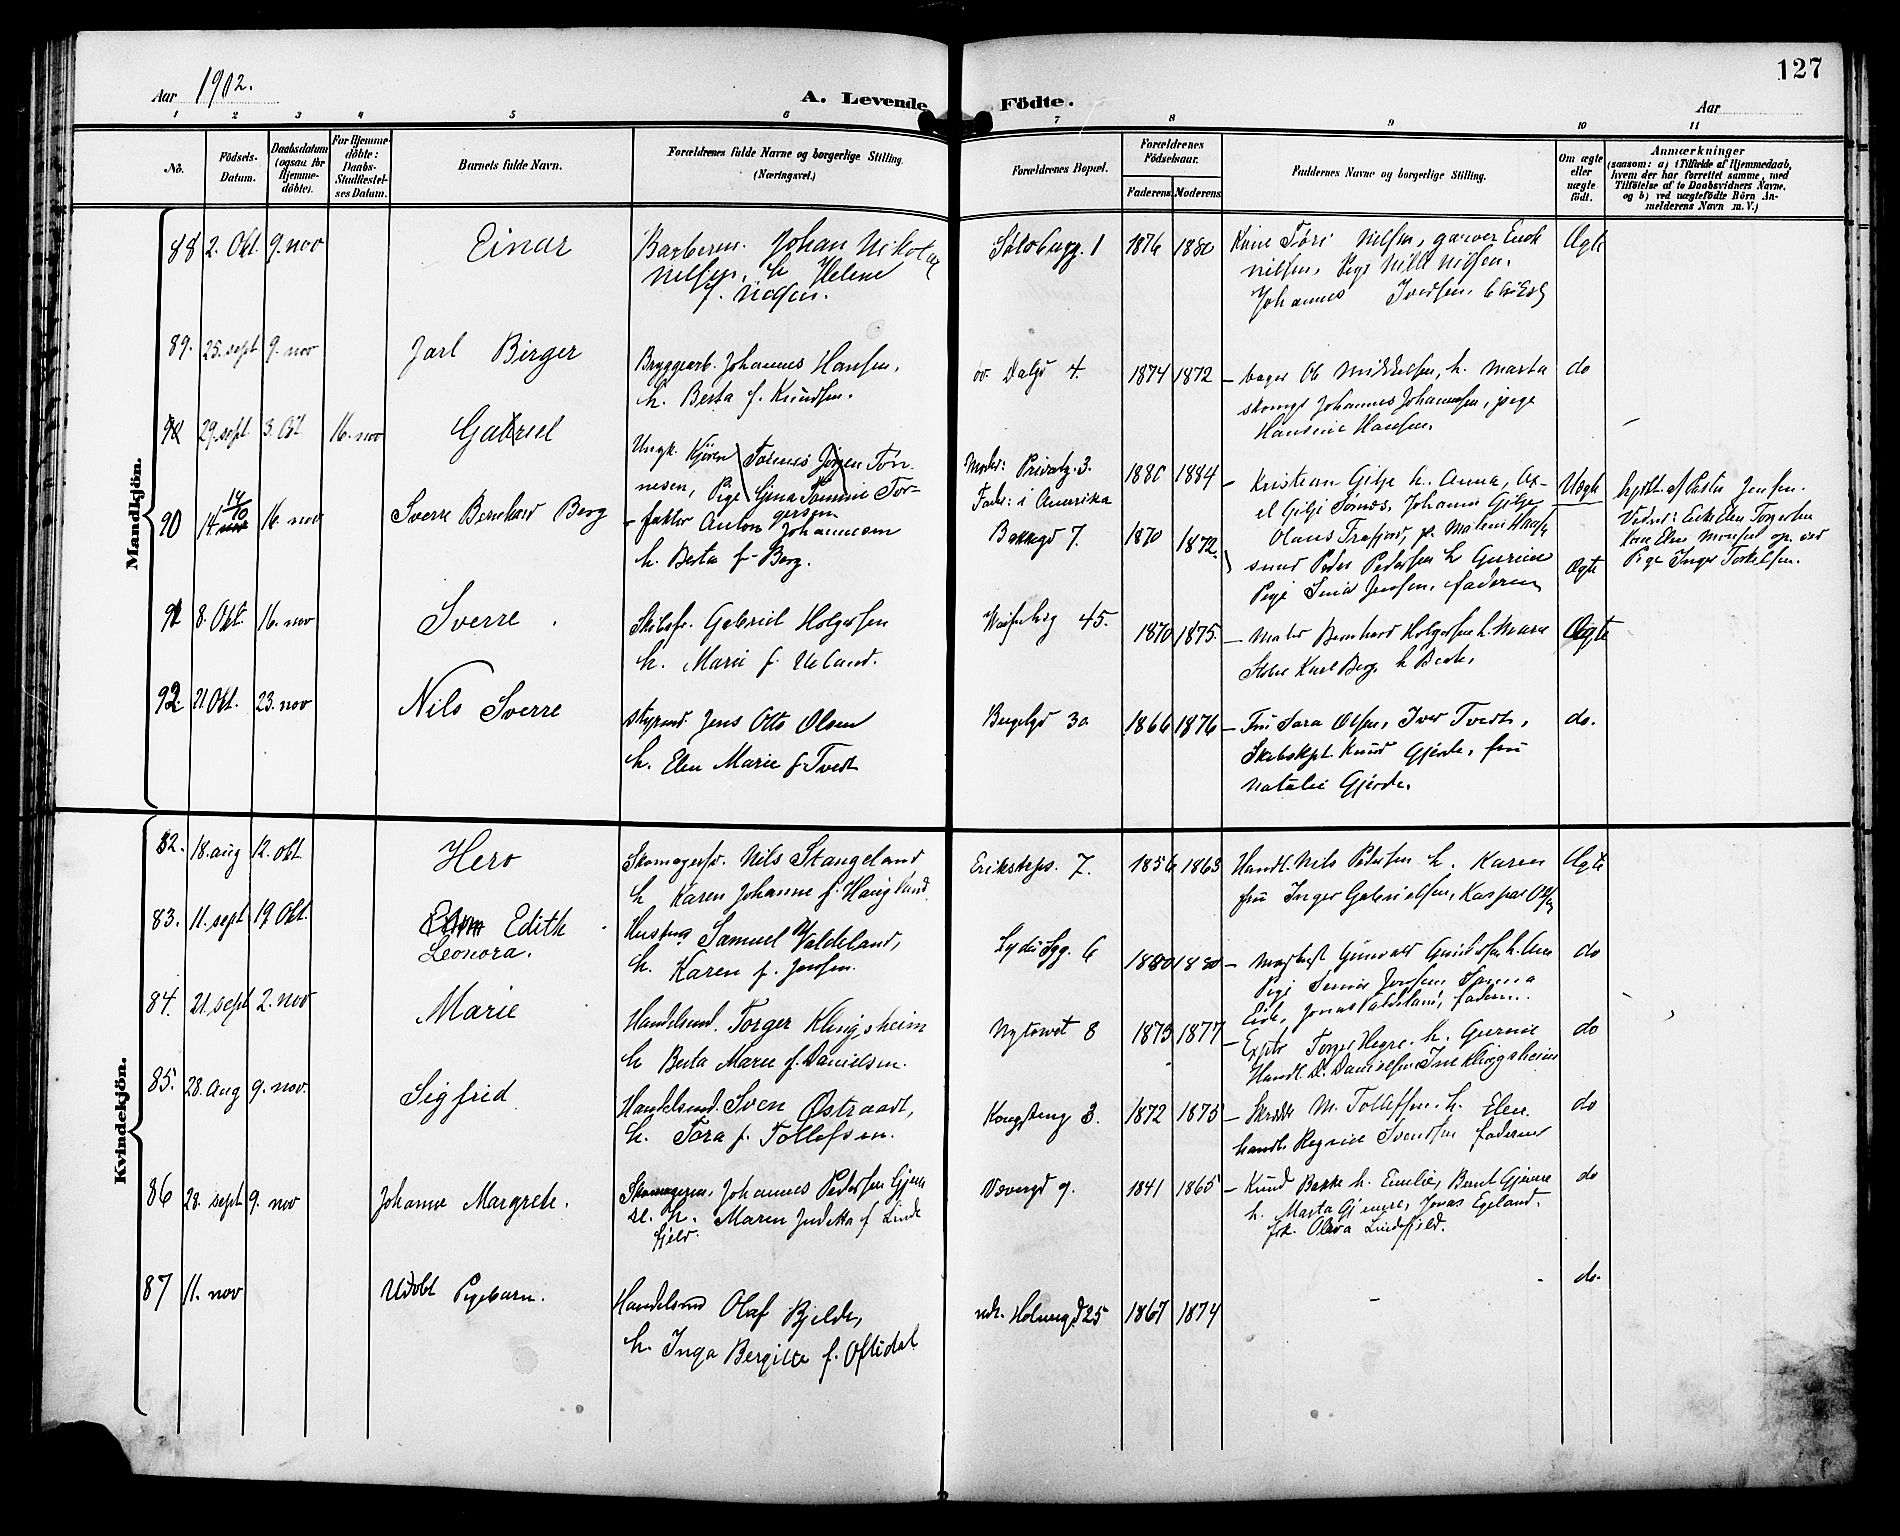 127
Aar 1902.
A. Levende Födte.
Aar
1 2 3 4 5 6 7 8 9 10 11
No.
Födsels-Datum.
Daabsdatum (ogsaa for Hjemme-döbte).
For Hjemme-döbte: Daabs-Stadfæstel-ses Datum.
Barnets fulde Navn.
Forældrenes fulde Navne og borgerlige Stilling. (Næringsvei.)
Forældrenes Bopæl.
Forældrenes Födselsaar.
Faderens Moderens
Faddernes Navne og borgerlige Stilling.
Om ægte eller uægte födt.
Anmærkninger
(saasom: a) i Tilfælde af Hjemmedaab,
hvem der har forrettet samme, med
Tilföielse af to Daabsvidners Navne,
og b) ved uægtefödte Börn An-
melderens Navn m. V.)
Mandkjön.
88 2. Okt. 9. nov Einar
Barberm. Johan Nikolai
Nilsen, h. Helene
f. Nilsen.
1 1876 1880
Nilsen, garver
Nilsen, Pige Nilsen.
Johannes Iversen
Ægte
89. 25. sept 9. nov Jarl Birger
Bryggearb. Johannes Hansen,
h. Berta f. Knudsen.
ov. Dalgd 4. 1874 1872
– bager Ole Mikkelsen, h. Marta
skomgr Johannes Johannesen, pige
Hansine Hansen.
do
29. sept 3. Okt 16. nov Gabriel
Ungk. Tønnes Jørgen Tøn-
nesen, Pige Gina Tomine Tor-
gersen
Moder: Privatg. 3.
Fader: i Amerika
1880 1884
– Kristian Gilje h. Anna, Ax-
el Gilje Johanne Gilje
Olaus
Uægte
hjdbt. af Pastor Jensen.
Pige Inger Torkelsen.
90 14 14/10 nov 16. nov Sverre Bernhard Berg
– faktor Anton Johannesen
h. Berta f. Berg.
Bakkegd 7. 1870 1872
smed Peder Pedersen h. Gurine
Pige Jensen, faderen
Ægte
91 8. Okt. 16. nov Sverre
Skibsfr. Gabriel Holgersen
h. Marie f. Ueland.
45. 1870 1875.
– maler Bernhard Holgersen h. Marie
Karl Berg h. Berta,
Ægte
92. 21 Okt. 23. nov Nils Sverre
styrmd Jens Otto Olsen
h. Elen Marie f. Tvedt
30 1866 1876
– Fru Sara Olsen, Iver Tvedt,
Skibskpt. Knud Gjerde, fru
Natalie Gjerde.
do.
Kvindekjön.
82. 18. aug 12. okt Hero
Skomagersv. Nils Stangeland
h. Karen Johanne f. Haugland.
7. 1856 1863
Handl. Nils Pedersen h. Karen
fru Inger Gabrielsen, Kaspar Olsen
Ægte
83. 11. sept 19 Okt. Edith
Leonora.
Samuel Valdeland,
h. Karen f. Jensen.
6 1880 1880
– Gunvald h.
Pige Jensen
Eide, Jonas Valdeland, faderen.
do
84. 21. sept 2. nov Marie
Handelsmd. Torger Klingsheim
h. Berta Marie f. Danielsen.
Nytorvet 8 1873 1877
– Torger Hegre h. Gurine
Handl. D. Danielsen, Ine Klingsheim
do
85. 28. aug 9. nov. Sigfrid
Handelsmd. Sven Østraadt,
h. Tora f. Tollefsen.
Kongsteng 3. 1872 1875
– Skrædder M. Tollefsen h. Elen
handl. Regine Svendsen faderen
do
86 28. sept 9. nov Johanne Margrete.
Skomagerm. Johannes Pedersen Gjem-
re. h. Maren Judetta f. Linde
fjeld.
Vævergd 9. 1841 1865
– Knud Bakke h. Emilie, Bernt Gjemre
h. Marta Gjemre, Jonas Egeland.
frk. Olava Lindefjeld.
do
87 11. nov Udöbt Pigebarn.
Handelsmd Olaf Bjelde,
h. Inga Bergitte f. Oftedal
ndr. Holmegd 25 1867 1874
do.